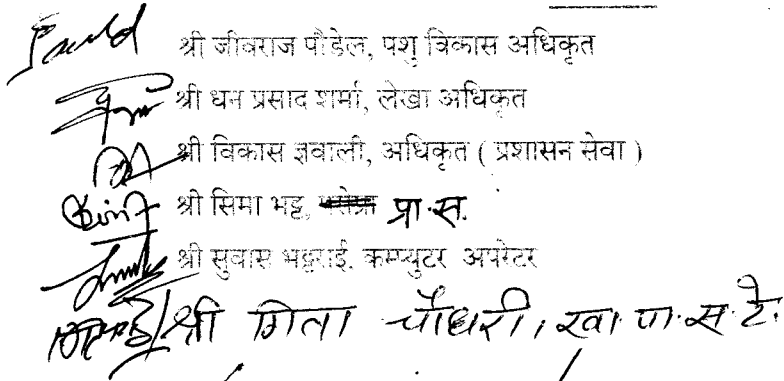 श्री जीवराज पौडेल, पशु विकास अधिकृत
श्री धन प्रसाद शर्मा, लेखा अधिकृत
श्री विकास ज्ञवाली, अधिकृत ( प्रशासन सेवा )
श्री सिमा भट्ट, प्रा.स.
श्री सुवास भट्टराई. कम्प्युटर अपरेटर
श्री गिता चौधरी, खा.पा.स.टे.